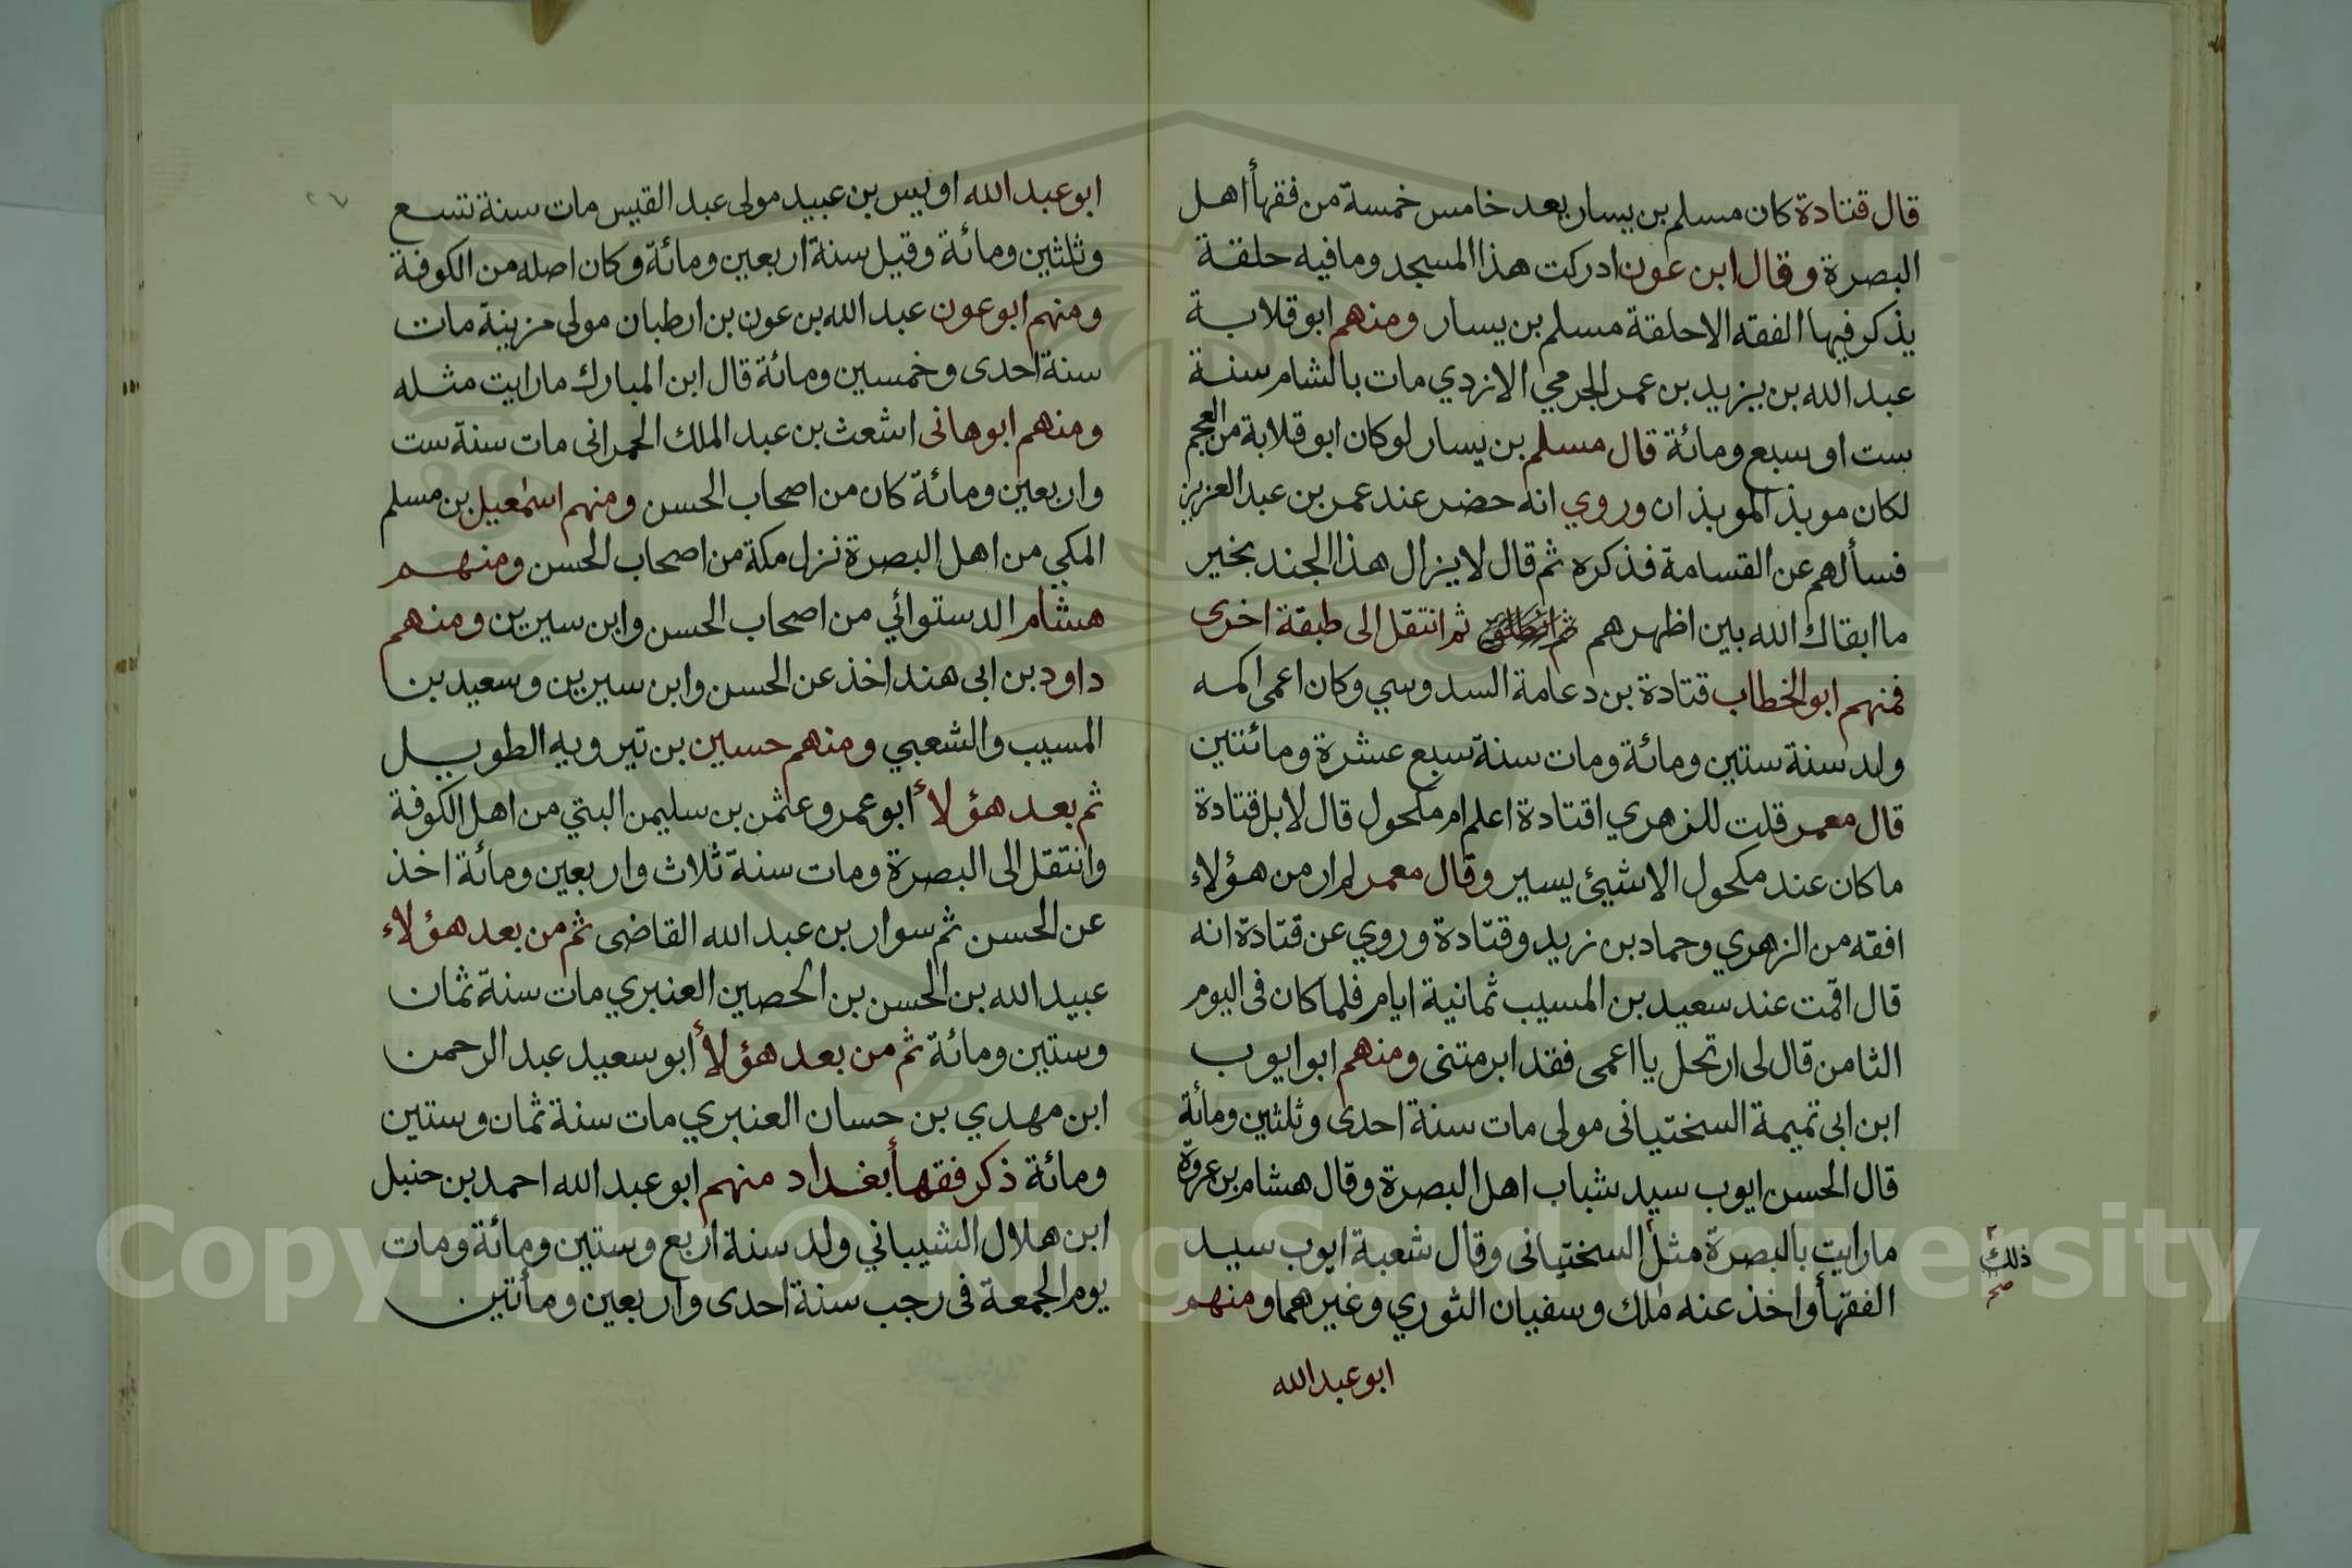 قال قتادة كان مسلم بن يسار يعد خامس خمسة من فقهأ اهل
البصرة وقال ابن عون ادركت هذا المسجد وما فيه حلقة
يذكر فيها الفقه الا حلقة مسلم بن يسار ومنهم ابو قلابة
عبد الله بن يزيد بن عمر الجرمي الازدي مات بالشام سنة
ست او سبع ومائة قال مسلم بن يسار لو كان ابو قلابة من العجم
لكان موبذ الموبذان وروي انه حضر عند عمر بن عبد العزيز
فسألهم عن القسامة فذكره ثم قال لا يزال هذا الجند بخير
ما ابقاك الله بين اظهرهم ثم انتقل الى طبقة اخرى
فمنهم ابو الخطاب قتادة بن دعامة السدوسي وكان اعمى اكمه
ولد سنة ستين ومائة ومات سنة سبع عشرة ومائتين
قال معمر قلت للزهري اقتادة اعلم ام مكحول قال لا بل قتادة
ما كان عند مكحول الا شيئ يسير وقال معمر لم ار من هؤلاء
افقه من الزهري وحماد بن زيد وقتادة وروي عن قتادة انه
قال اقمت عند سعيد بن المسيب ثمانية ايام فلما كان فى اليوم
الثامن قال لى ارتحل يا اعمى فقد ابرمتنى ومنهم ابو ايوب
ابن ابى تميمة السختيانى مولى مات سنة احدى وثلثين ومأئة
قال الحسن ايوب سيد شباب اهل البصرة وقال هشام بن عروة
ما رايت بالبصرة مثل السختيانى وقال شعبة ايوب سيد
ذلك
صح
الفقهأ واخذ عنه ملك وسفيان الثوري وغيرهما ومنهم
ابو عبد الله
ابو عبد الله اويس بن عبيد مولى عبد القيس مات سنة تسع
وثلثين ومائة وقيل سنة اربعين ومائة وكان اصله من الكوفة
ومنهم ابو عون عبد الله بن عون بن ارطبان مولى مزينة مات
سنة احدى وخمسين ومائة قال ابن المبارك ما رايت مثله
ومنهم ابو هانى اشعث بن عبد الملك الحمرانى مات سنة ست
واربعين ومائة كان من اصحاب الحسن ومنهم اسمعيل بن مسلم
المكي من اهل البصرة نزل مكة من اصحاب الحسن ومنهم
هشام الدستوائي من اصحاب الحسن وابن سيرين ومنهم
داود بن ابى هند اخذ عن الحسن وابن سيرين وسعيد بن
المسيب والشعبي ومنهم حسين بن تيرويه الطويل
ثم بعد هؤلأ ابو عمرو عثمن بن سليمن البتي من اهل الكوفة
وانتقل الى البصرة ومات سنة ثلاث واربعين ومائة اخذ
عن الحسن ثم سوار بن عبد الله القاضى ثم من بعد هؤلاء
عبيد الله بن الحسن بن الحصين العنبري مات سنة ثمان
وستين ومائة ثم من بعد هؤلأ ابو سعيد عبد الرحمن
ابن مهدي بن حسان العنبري مات سنة ثمان وستين
ومائة ذكر فقهأ بغداد منهم ابو عبد الله احمد بن حنبل
ابن هلال الشيباني ولد سنة اربع وستين ومائة ومات
يوم الجمعة فى رجب سنة احدى واربعين ومأتين
Copyright © King Saud University